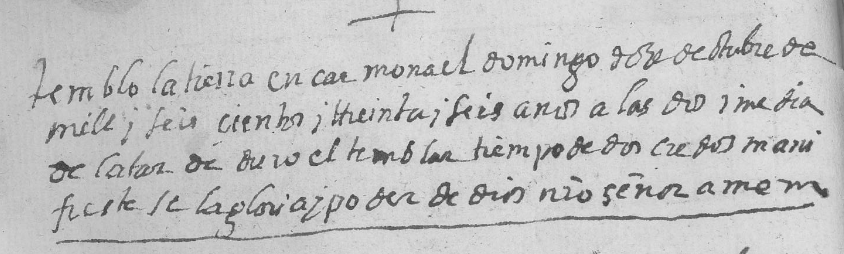 temblo la tierra en carmona el domingo doze de otubre de
mill j seis cientos j treinta j seis anos a las dos j media
de la tar de duro el temblar tiempo de dos credos mani
fieste se la gloria j poder de dios nro señor amem